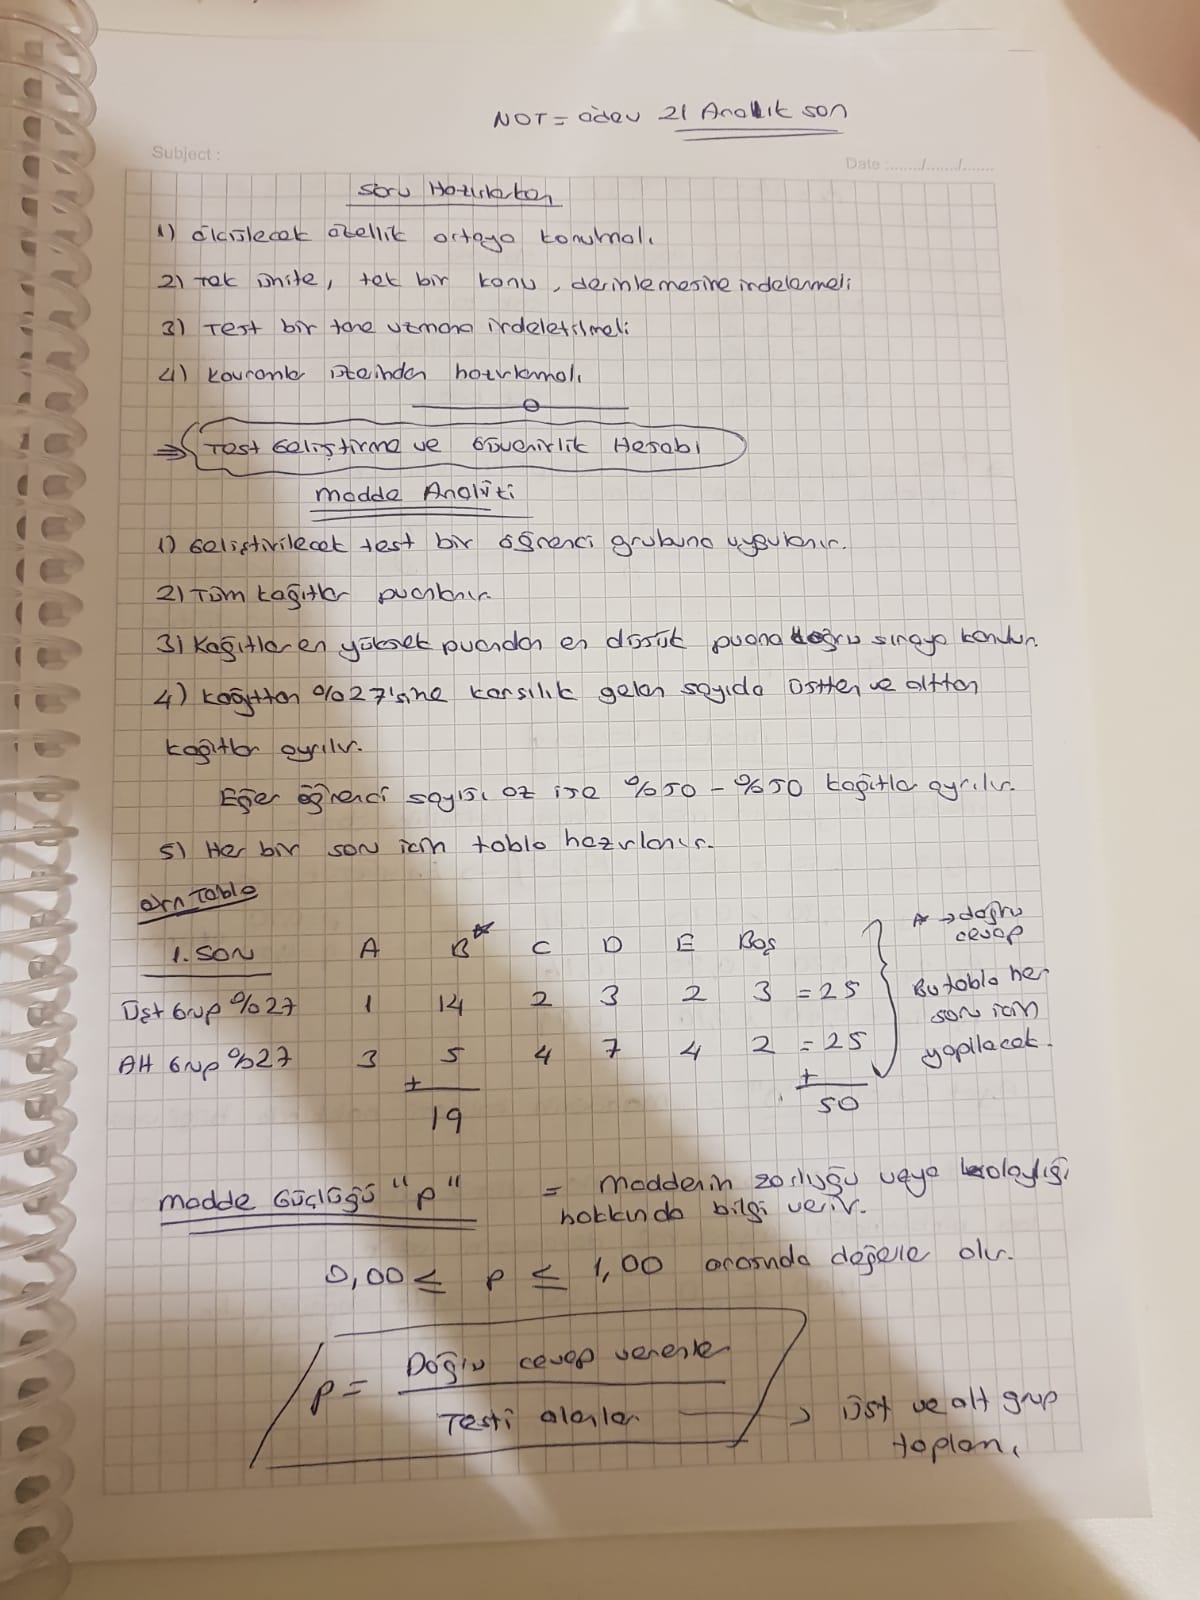 NOT = ödev 21 Aralık son
Subject :
Date :......./......./.......
Soru Hazırlarken
1) ölçülecek özellik ortaya konulmalı
2) Tek ünite, tek bir konu, derinlemesine irdelenmeli
3) Test bir tane uzmana irdeletilmeli
4) Kavramlar üzerinden hazırlanmalı
⇒ Test Geliştirme ve Güvenirlik Hesabı
Madde Analizi
1) Geliştirilecek test bir öğrenci grubuna uygulanır.
2) Tüm kağıtlar puanlanır.
3) Kağıtlar en yüksek puandan en düşük puana doğru sıraya konulur.
4) Kağıttan %27'sine karşılık gelen sayıda üstten ve alttan
kağıtlar ayrılır.
Eğer öğrenci sayısı az ise %50 - %50 kağıtlar ayrılır.
5) Her bir soru için tablo hazırlanır.
Örn Tablo
1. Soru A B* C D E Boş
Üst Grup %27 1 14 2 3 2 3 = 25
Alt Grup %27 3 5 4 7 4 2 = 25
+ +
19 50
* → doğru
cevap
Bu tablo her
soru için
yapılacak.
Madde Güçlüğü "p" = Maddenin zorluğu veya kolaylığı
hakkında bilgi verir.
0,00 ≤ p ≤ 1,00 arasında değerler alır.
p = Doğru cevap verenler
Testi alanlar → üst ve alt grup
toplamı